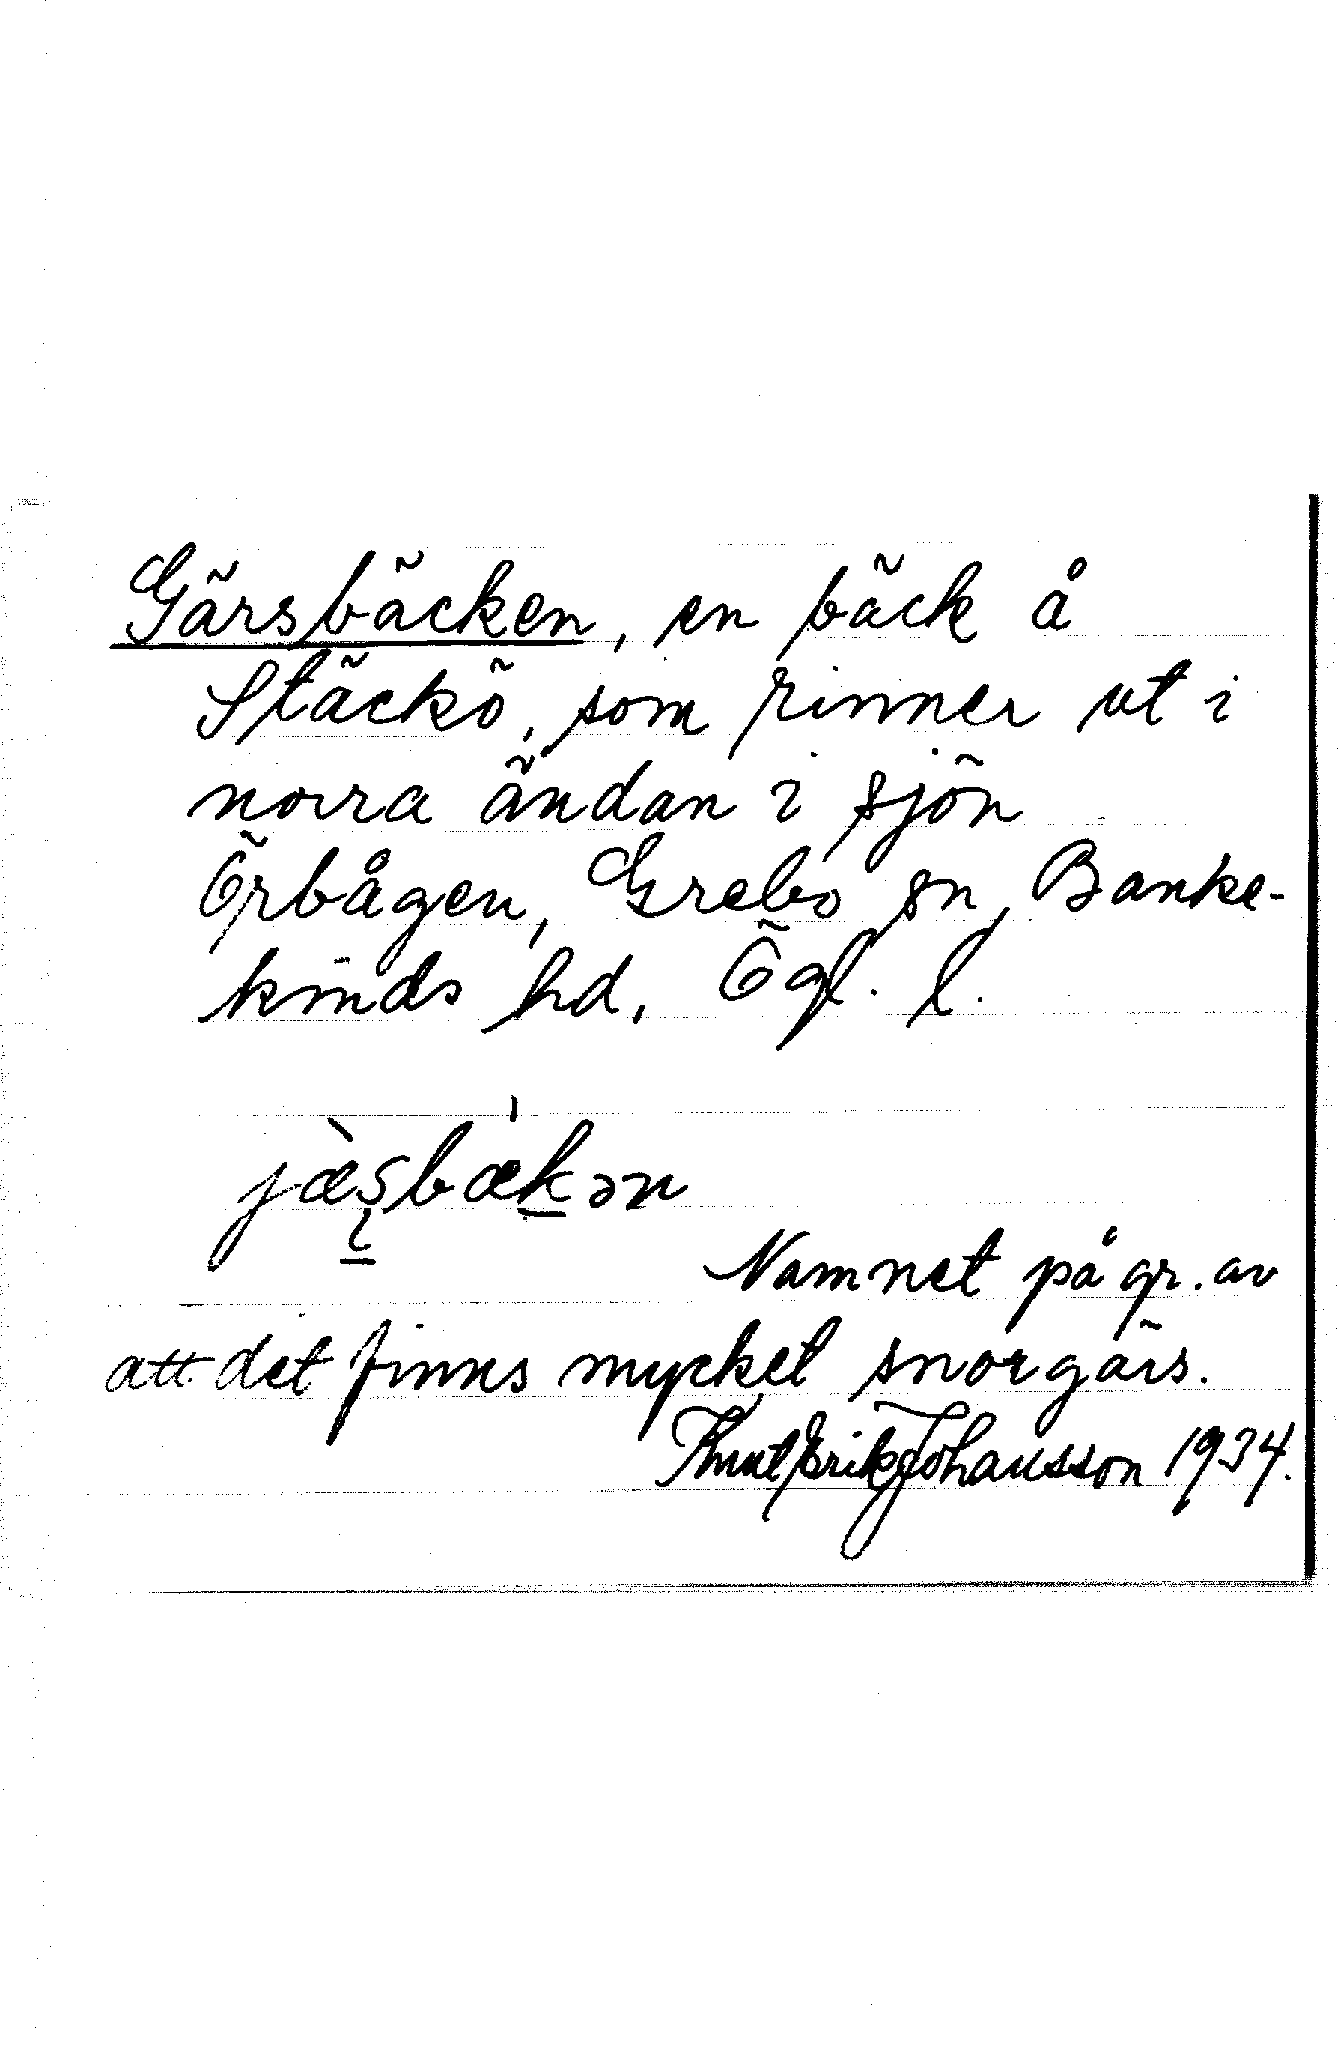 Gärsbäcken, en bäck å
Stäckö, som rinner ut i
norra ändan i sjön
Örbågen, Grebo sn, Banke-
kinds hd, Ögl. l.
jæ̀ʂbækən
Namnet på gr. av
att det finns mycket snorgärs.
Knut Erik Johansson 1934.